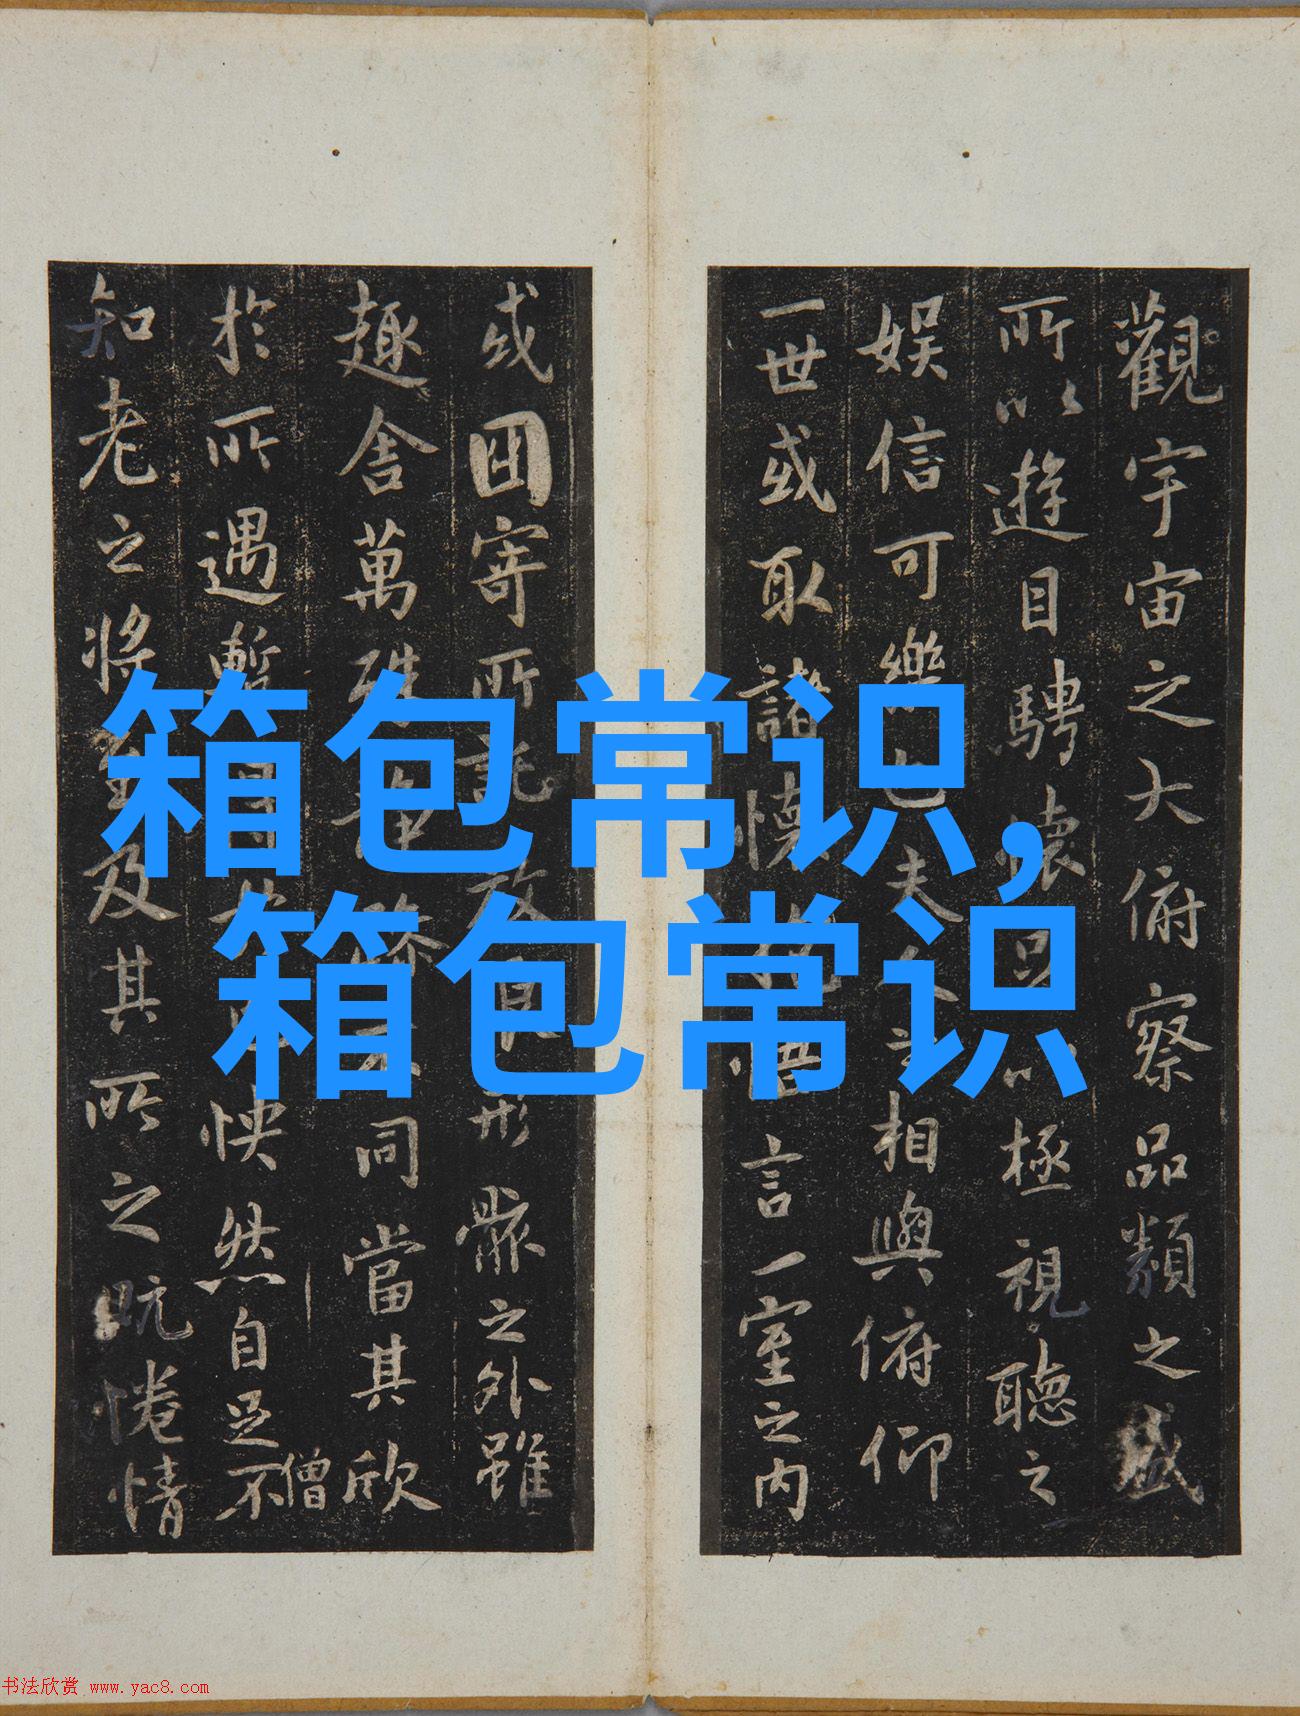 觀宇宙之大俯察品類之盛
所以遊目騁懷
極視聽之
娛信可樂也夫
相與俯仰
一世或取諸懷
言一室之内
或因寄所託放
形骸之外雖
趣舍萬殊
同當其欣
於所遇暫
快然自足不
僧
知老之將至及其所之既惓情
箱包常识,
箱包常识
书法欣赏 www.yac8.com